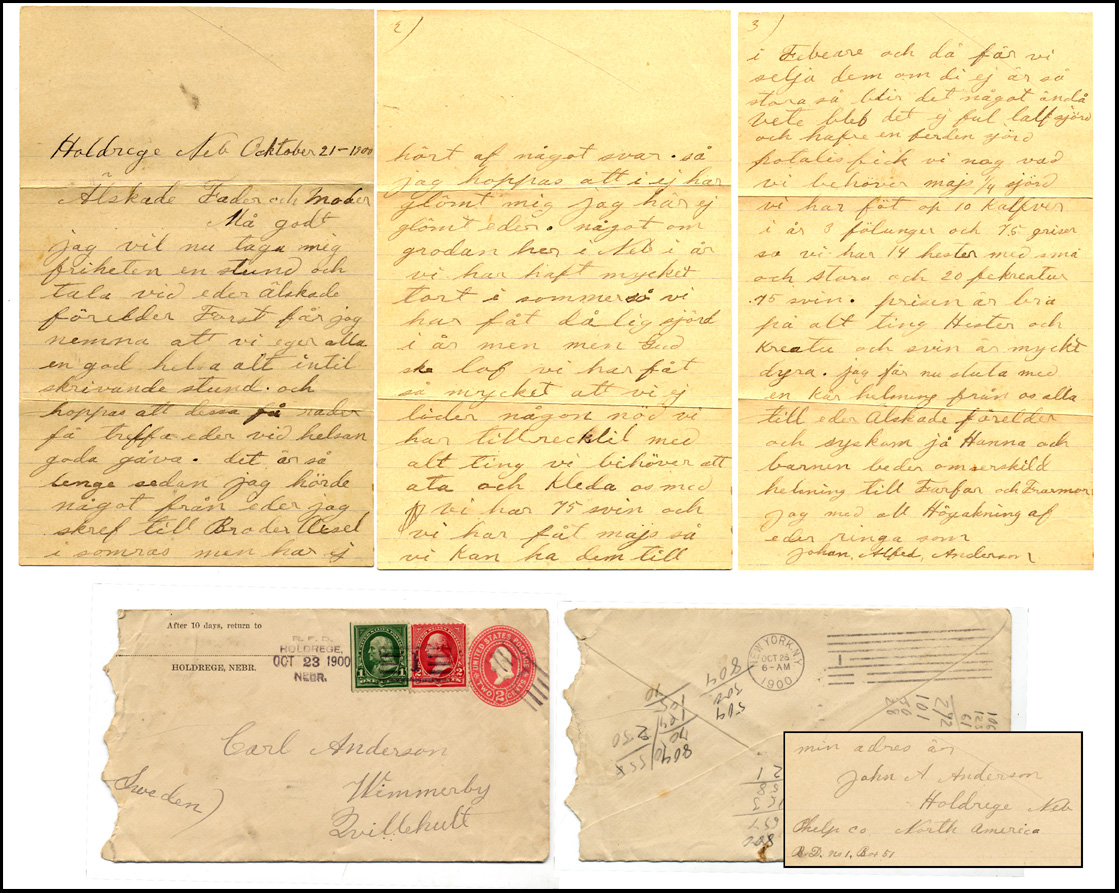 Holdrege Neb Ocktober 21-1900
Älskade Fader och Moder
Må godt
jag vil nu taga mig
friheten en stund och
tala vid eder älskade
förelder Först får jag
nemna att vi eger alla
en god helsa alt intil
skrivande stund. och
hoppas att dessa få rader
få treffa eder vid helsan
goda gåva. det är så
lenge sedan jag hörde
något från eder jag
skref till Broder
i somras men har ej
2)
hört af något svar. så
jag hoppas att i ej har
glömt mig jag har ej
glömt eder. något om
grodan her i Neb i år
vi har haft mycket
tort i sommer så vi
har fåt dålig sjörd
i år men men Gud
ske lof vi har fåt
så mycket att vi ej
lider någon nöd vi
har tillrecklil med
alt ting vi behöver att
äta och kleda os med
vi har 75 svin och
vi har fåt majs så
vi kan ha dem till
3)
i Febeare och då får vi
selja dem om di ej är så
stora så blir det något ändå
vete bleb det ej ful half sjörd
och hafre en ferden sjörd
potatis fick vi nog vad
vi behöver majs 1/4 sjörd
vi har föt op 10 kalfver
i år 3 fölunger och 75 griser
so vi har 14 hester med små
och stora och 20 fekreatur
75 svin. prisen är bra
på alt ting Hester och
Kreatur och svin är myckt
dyra. jag får nu sluta med
en kär helsning från os alla
till eder Älskade förelder
och syskom jå Hanna och
barnen beder om serskild
helsning till Farfar och Frarmor
jag med all Högakning af
eder ringa son
Johan, Alfred, Anderson
After 10 days, return to
HOLDREGE, NEBR.
R. F. D.
HOLDREGE,
OCT 23 1900
NEBR.
1
2
UNITED STATES POSTAGE
2
TWO CENTS
Carl Anderson
Wimmerby
Qvillehult
Sweden)
NEW YORK, N.Y.
OCT 26
6-AM
1900
1
804
300
504
106
125
61
292
101
min adres är
John A Anderson
Holdrege Neb
Phelps co North America
R.D. no 1, Box 51